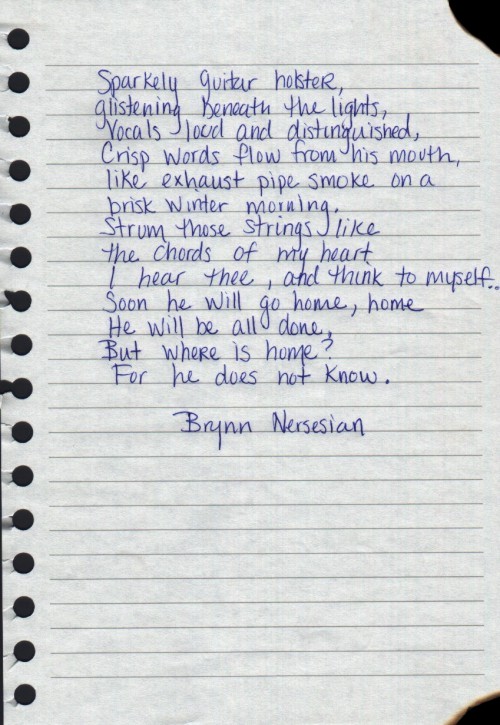 Sparkely guitar holster,
glistening beneath the lights,
Vocals loud and distinguished,
Crisp words flow from his mouth,
like exhaust pipe smoke on a
brisk winter morning.
Strum those strings like
the chords of my heart
I hear thee, and think to myself..
Soon he will go home, home
He will be all done,
But where is home?
For he does not know.
Brynn Nersesian